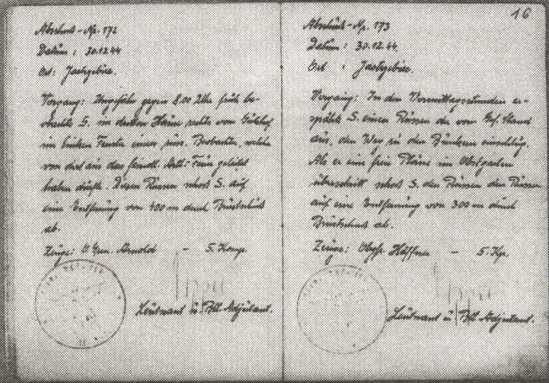 16
Abschuss-Nr. 172
Datum: 30.12.44
Ort: Jastgebiee.
Vorgang: Ungefähr gegen 8.00 Uhr früh be-
S. im Haine rechts von
im linken Fenster einen russ. Beobachter, welcher
von dort aus das feindl. Artl.-Feuer geleitet
haben dürfte. Diesen Russen schoß S. auf
eine Entfernung von 400 m durch Brustschuß
ab.
Zeuge: Arnold - 5. Komp.
Leutnant u. Btl. Adjutant.
Abschuss-Nr. 173
Datum: 30.12.44.
Ort: Jastgebiee.
Vorgang: In den Vormittagsstunden er-
spähte S. einen Russen der vom
aus, den Weg zu den Bunkern einschlug.
Als er eine freie Fläche im Obstgarten
überschritt schoß S. den Russen
auf eine Entfernung von 300 m durch
Brustschuß ab.
Zeuge: Obgfr. Häffner - 5. Kp.
Leutnant u. Btl. Adjutant.